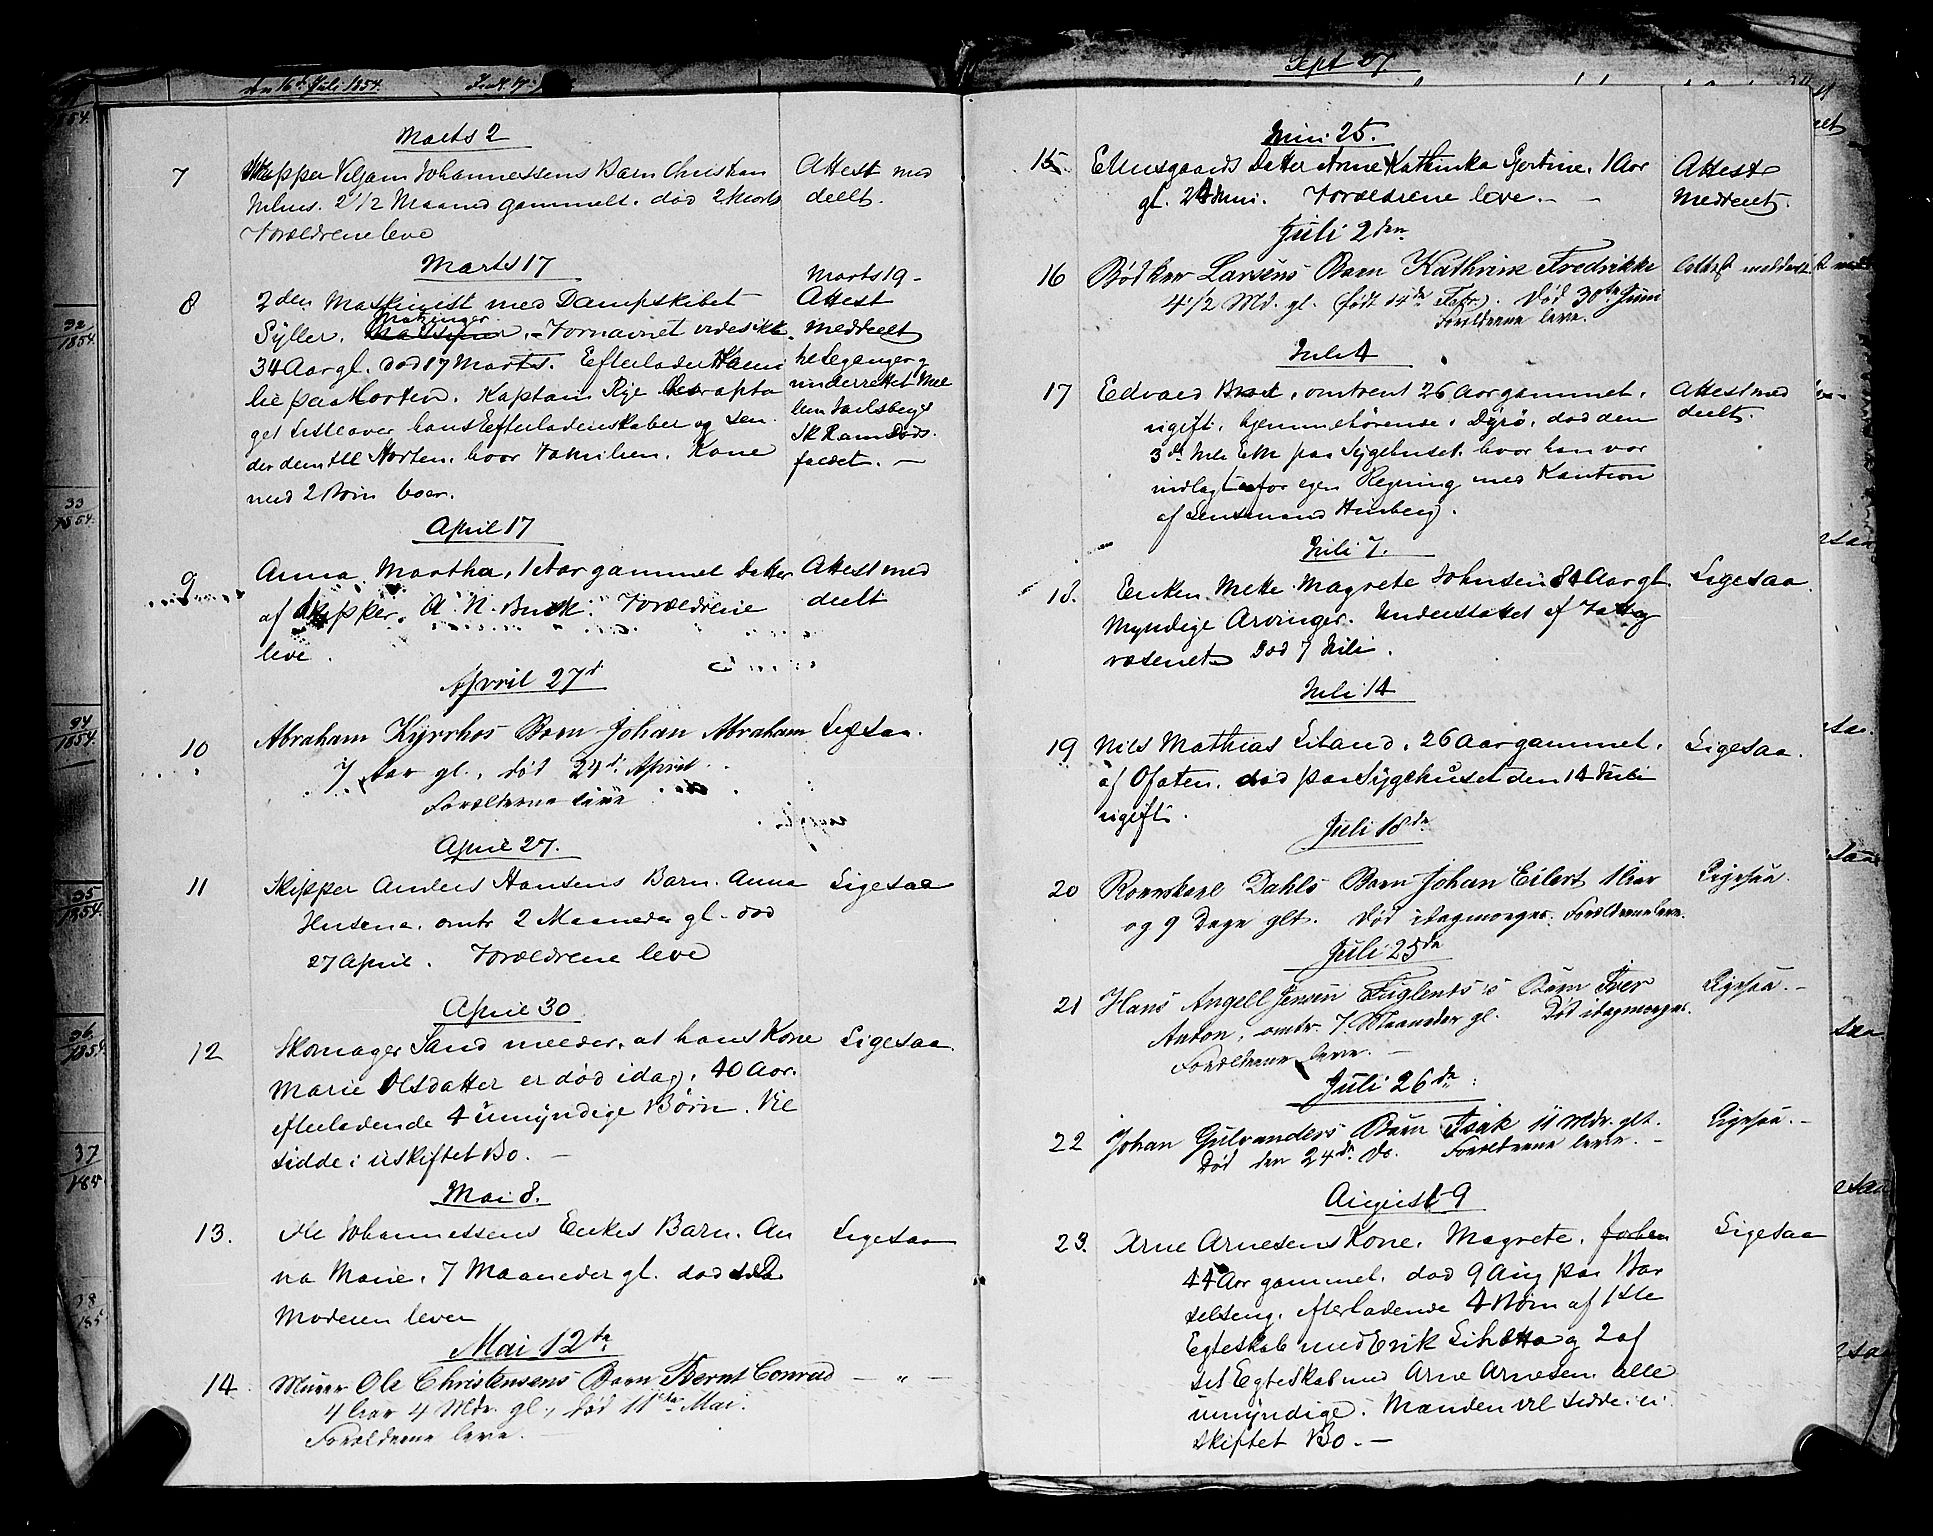 den 16de Juli 1854.
Sept 27
Marts 2
7
Skipper Viljam Johannessens Barn Christian
2 1/2 Maaned gammelt. død 2 Marts
Forældrene leve
Attest med
deelt.
Marts 17
8
2den Maskinist med Dampskibet
Syller. Matzinger. Fornavnet vides ikke
34 Aar gl. død 17 Marts. Efterlader Fami
lie paa Horten. Kaptain Rye har opta
get Liste over hans Efterladenskaber og sen
der dem til Horten, hvor Familien, Kone
med 2 Børn boer.
Marts 19 -
Attest
meddeelt
underrettet Mel
lem Jarlsberg
Sk Ram Døds
faldet. —
April 17
9
Anna Martha, 1 Aar gammel Datter
af Skipper A. N. Buck. Forældrene
leve.
Attest med
deelt
April 27d
10
Abraham Kyrrhos Barn Johan Abraham
7 Aar gl., død 24d. April
Forældrene leve
Ligesaa.
April 27.
11
Skipper Anders Hansens Barn. Anna
Husena. omtr 2 Maaneder gl. død
27 April. Forældrene leve
Ligesaa
April 30
12
Skomager Sand melder, at hans Kone
Marie Olsdatter er død idag, 40 Aar.
efterladende 4 umyndige Børn. Vil
sidde i uskiftet Bo. —
Ligesaa
Mai 8.
13.
Ole Johannessens Enkes Barn. An
na Marie, 7 Maaneder gl. død
Moderen lever
Ligesaa
Mai 12te
14
Murer Ole Christensens Barn Bernt Conrad
4 Aar 4 Mdr. gl., død 11te Mai.
Forældrene leve. —
— " —
Juni 25.
15
Elnesgaards Datter Anne Kathinka Gjertine, 1 Aar
gl. 24 Juni. Forældrene leve. —
Attest
meddeelt.
Juli 2den
16
Bødker Larsens Barn Kathrine Fredrikke
4 1/2 Md. gl. (født 14de Febr.). Død 30te Juni
Forældrene leve.
Attest meddeelt
Juli 4
17
Edvard Brox, omtrent 26 Aar gammel,
ugift, hjemmehörende i Dyrö, död den
3de Juli paa Sygehuset, hvor han var
indlagt for egen Regning med Kaution
af Lensmand Hinberg.
Attest med
deelt.
Juli 7.
18.
Enken Mette Magrete Johnsen 81 Aar gl.
Myndige Arvinger. Understøttet af Fattig
væsenet. Død 7 Juli.
Ligesaa.
Juli 14
19
Nils Mathias Liland, 26 Aar gammel,
af Ofoten, død paa Sygehuset den 14 Juli
ugift.
Ligesaa.
Juli 18de
20
Dahls Barn Johan Eilert 1 Aar
og 9 Dage glt. Død idag morges. Forældrene leve.
Ligesaa.
Juli 25de
21
Hans Angell Jensen Barn Iver
Anton, omtr. 7 Maaneder gl. Død idag morges.
Forældrene leve. —
Ligesaa. —
Juli 26de
22
Johan Gulvanders Barn Isak 11 Mdr. glt.
død den 24de ds. Forældrene leve. —
Ligesaa. —
August 9
23.
Arne Arnesens Kone, Magrete, forhen
44 Aar gammel, død 9 Aug paa Bar
selseng, efterladende 4 Børn af 1ste
Egteskab med Erik og 2 af
Egteskab med Arne Arnesen alle
umyndige. Manden vil sidde i u
skiftet Bo. —
Ligesaa